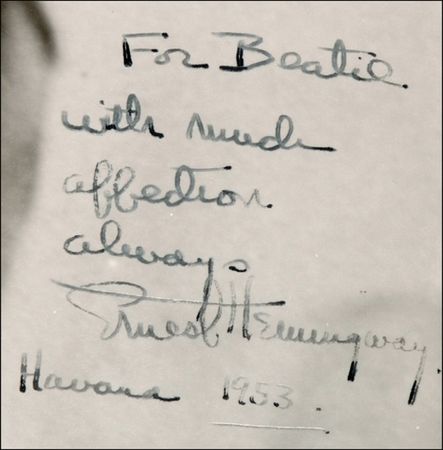 For Beatie
with much
affection
always
Ernest Hemingway
Havana 1953.